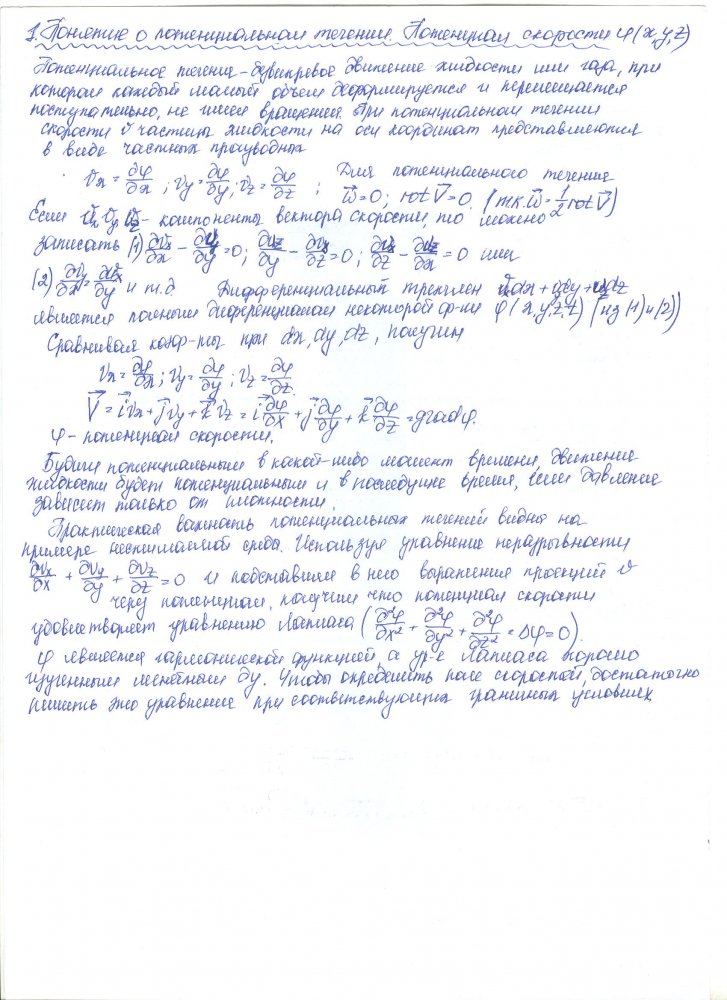 1. Понятие о потенциальном течении. Потенциал скорости φ(x,y,z)
Потенциальное течение - безвихревое движение жидкости или газа, при
котором каждый малый объем деформируется и перемещается
поступательно, не имея вращения. При потенциальном течении
скорости v частицы жидкости на оси координат представляются
в виде частных производных
Vx = ∂φ/∂x ; Vy = ∂φ/∂y ; Vz = ∂φ/∂z ; Для потенциального течения
W⃗=0; rot V⃗=0. (т.к. W⃗=1/2 rot V⃗)
Если Vx Vy Vz - компоненты вектора скорости, то можно
записать (1) ∂Vx/∂x - ∂Vy/∂y =0; ∂Vz/∂y - ∂Vy/∂z =0; ∂Vx/∂z - ∂Vz/∂x =0 или
(2) ∂Vy/∂x = ∂Vx/∂y и т.д Дифференциальный трехчлен Vxdx+Vydy+Vzdz
является полным дифференциалом некоторой ф-ии φ(x,y,z,t) (из (1) и (2))
Сравнивая коэф-ты при dx, dy, dz, получим
Vx = ∂φ/∂x ; Vy = ∂φ/∂y ; Vz = ∂φ/∂z.
V⃗ = i⃗Vx + j⃗Vy + k⃗Vz = i⃗ ∂φ/∂x + j⃗ ∂φ/∂y + k⃗ ∂φ/∂z = gradφ.
φ - потенциал скорости.
Будучи потенциальным в какой-либо момент времени, движение
жидкости будет потенциальным и в последущие время, если давление
зависит только от плотности.
Практическая важность потенциальных течений видна на
примере несжимаемой среды. Используя уравнение неразрывности
∂Vx/∂x + ∂Vy/∂y + ∂Vz/∂z =0 и подставив в него выражения проекций v
через потенциал, получим что потенциал скорости
удовлетворяет уравнению Лапласа (∂²φ/∂x² + ∂²φ/∂y² + ∂²φ/∂z² = Δφ=0).
φ является гармонической функцией, а ур-е Лапласа хорошо
изученным линейным ДУ. Чтобы определить поле скоростей, достаточно
решить это уравнение при соответствующих граничных условиях